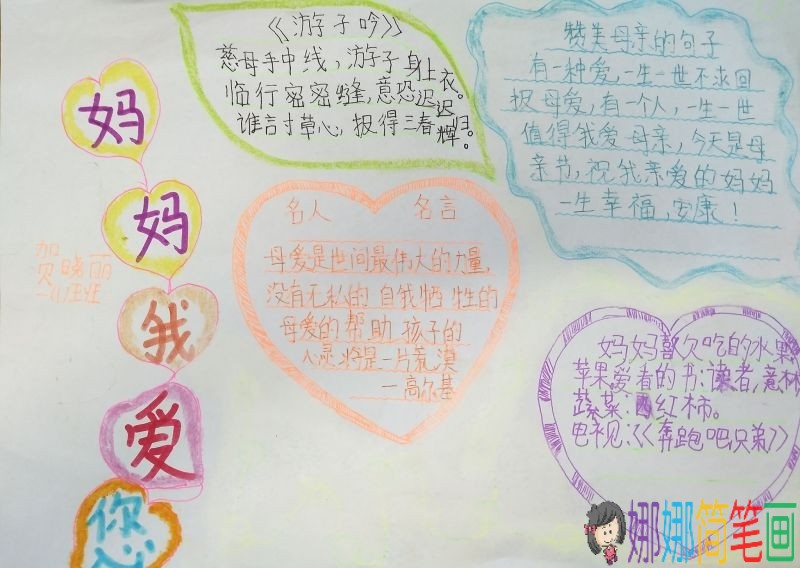 妈
妈
我
爱
你
贺晓丽
《游子吟》
慈母手中线,游子身上衣。
临行密密缝,意恐迟迟归。
谁言寸草心,报得三春晖。
赞美母亲的句子
有一种爱,一生一世不求回
报母爱,有一个人,一生一世
值得我爱母亲,今天是母
亲节,祝我亲爱的妈妈
一生幸福,安康!
名人 名言
母爱是世间最伟大的力量,
没有无私的自我牺牲的
母爱的帮助孩子的
心灵将是一片荒漠
—高尔基
妈妈喜欠吃的水果
苹果爱看的书:读者,意林
蔬菜:西红柿。
电视:《奔跑吧兄弟》
娜娜简笔画